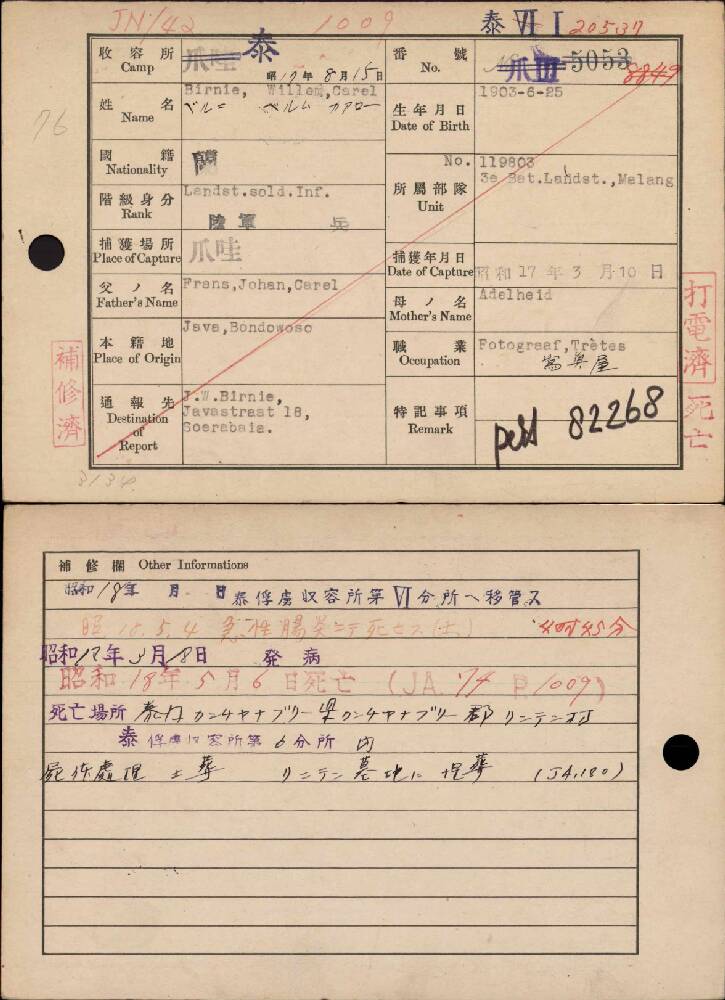 JN/42 1009 泰 VI I 20537
収容所 Camp 爪哇 泰 昭17年8月15日
番號 No. 爪III 5053 8849
姓名 Name Birnie, Willem,Carel
生年月日 Date of Birth 1903-6-25
76
國籍 Nationality 蘭
所屬部隊 Unit No. 119803
3e Bat.Landst.,Malang
階級身分 Rank Landst.sold.Inf.
陸軍 兵
捕獲場所 Place of Capture 爪哇
捕獲年月日 Date of Capture 昭和17年3月10日
父ノ名 Father's Name Frans,Johan,Carel
母ノ名 Mother's Name Adelheid
本籍地 Place of Origin Java,Bondowoso
職業 Occupation Fotograaf,Tretes
寫眞屋
通報先 Destination of Report J.W.Birnie,
Javastraat 18,
Soerabaia.
特記事項 Remark 82268
補修濟
打電濟 死亡
補修欄 Other Informations
昭和18年 月 日泰俘虜収容所第VI分所ヘ移管ス
5.4 急性腸炎ニテ死亡ス 45分
昭和17年3月18日 発病
昭和18年5月6日死亡 (JA.74 P.1009)
死亡場所 泰国カンチヤナブリー県カンチヤナブリー郡リンテン村
泰俘虜収容所第6分所内
屍体處理 土葬 リンテン墓地ニ埋葬 (JA.180)